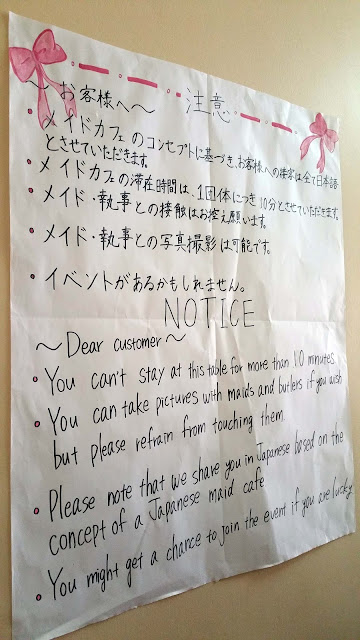 注意
〜お客様へ〜
・メイドカフェのコンセプトに基づき、お客様への接客は全て日本語
とさせていただきます。
・メイドカフェの滞在時間は、1団体につき10分とさせていただきます。
・メイド・執事との接触はお控え願います。
・メイド・執事との写真撮影は可能です。
・イベントがあるかもしれません。
NOTICE
〜Dear customer〜
• You can't stay at this table for more than 10 minutes
• You can take pictures with maids and butlers if you wish
but please refrain from touching them
• Please note that we share you in Japanese based on the
concept of a Japanese maid cafe
• You might get a chance to join the event if you are lucky